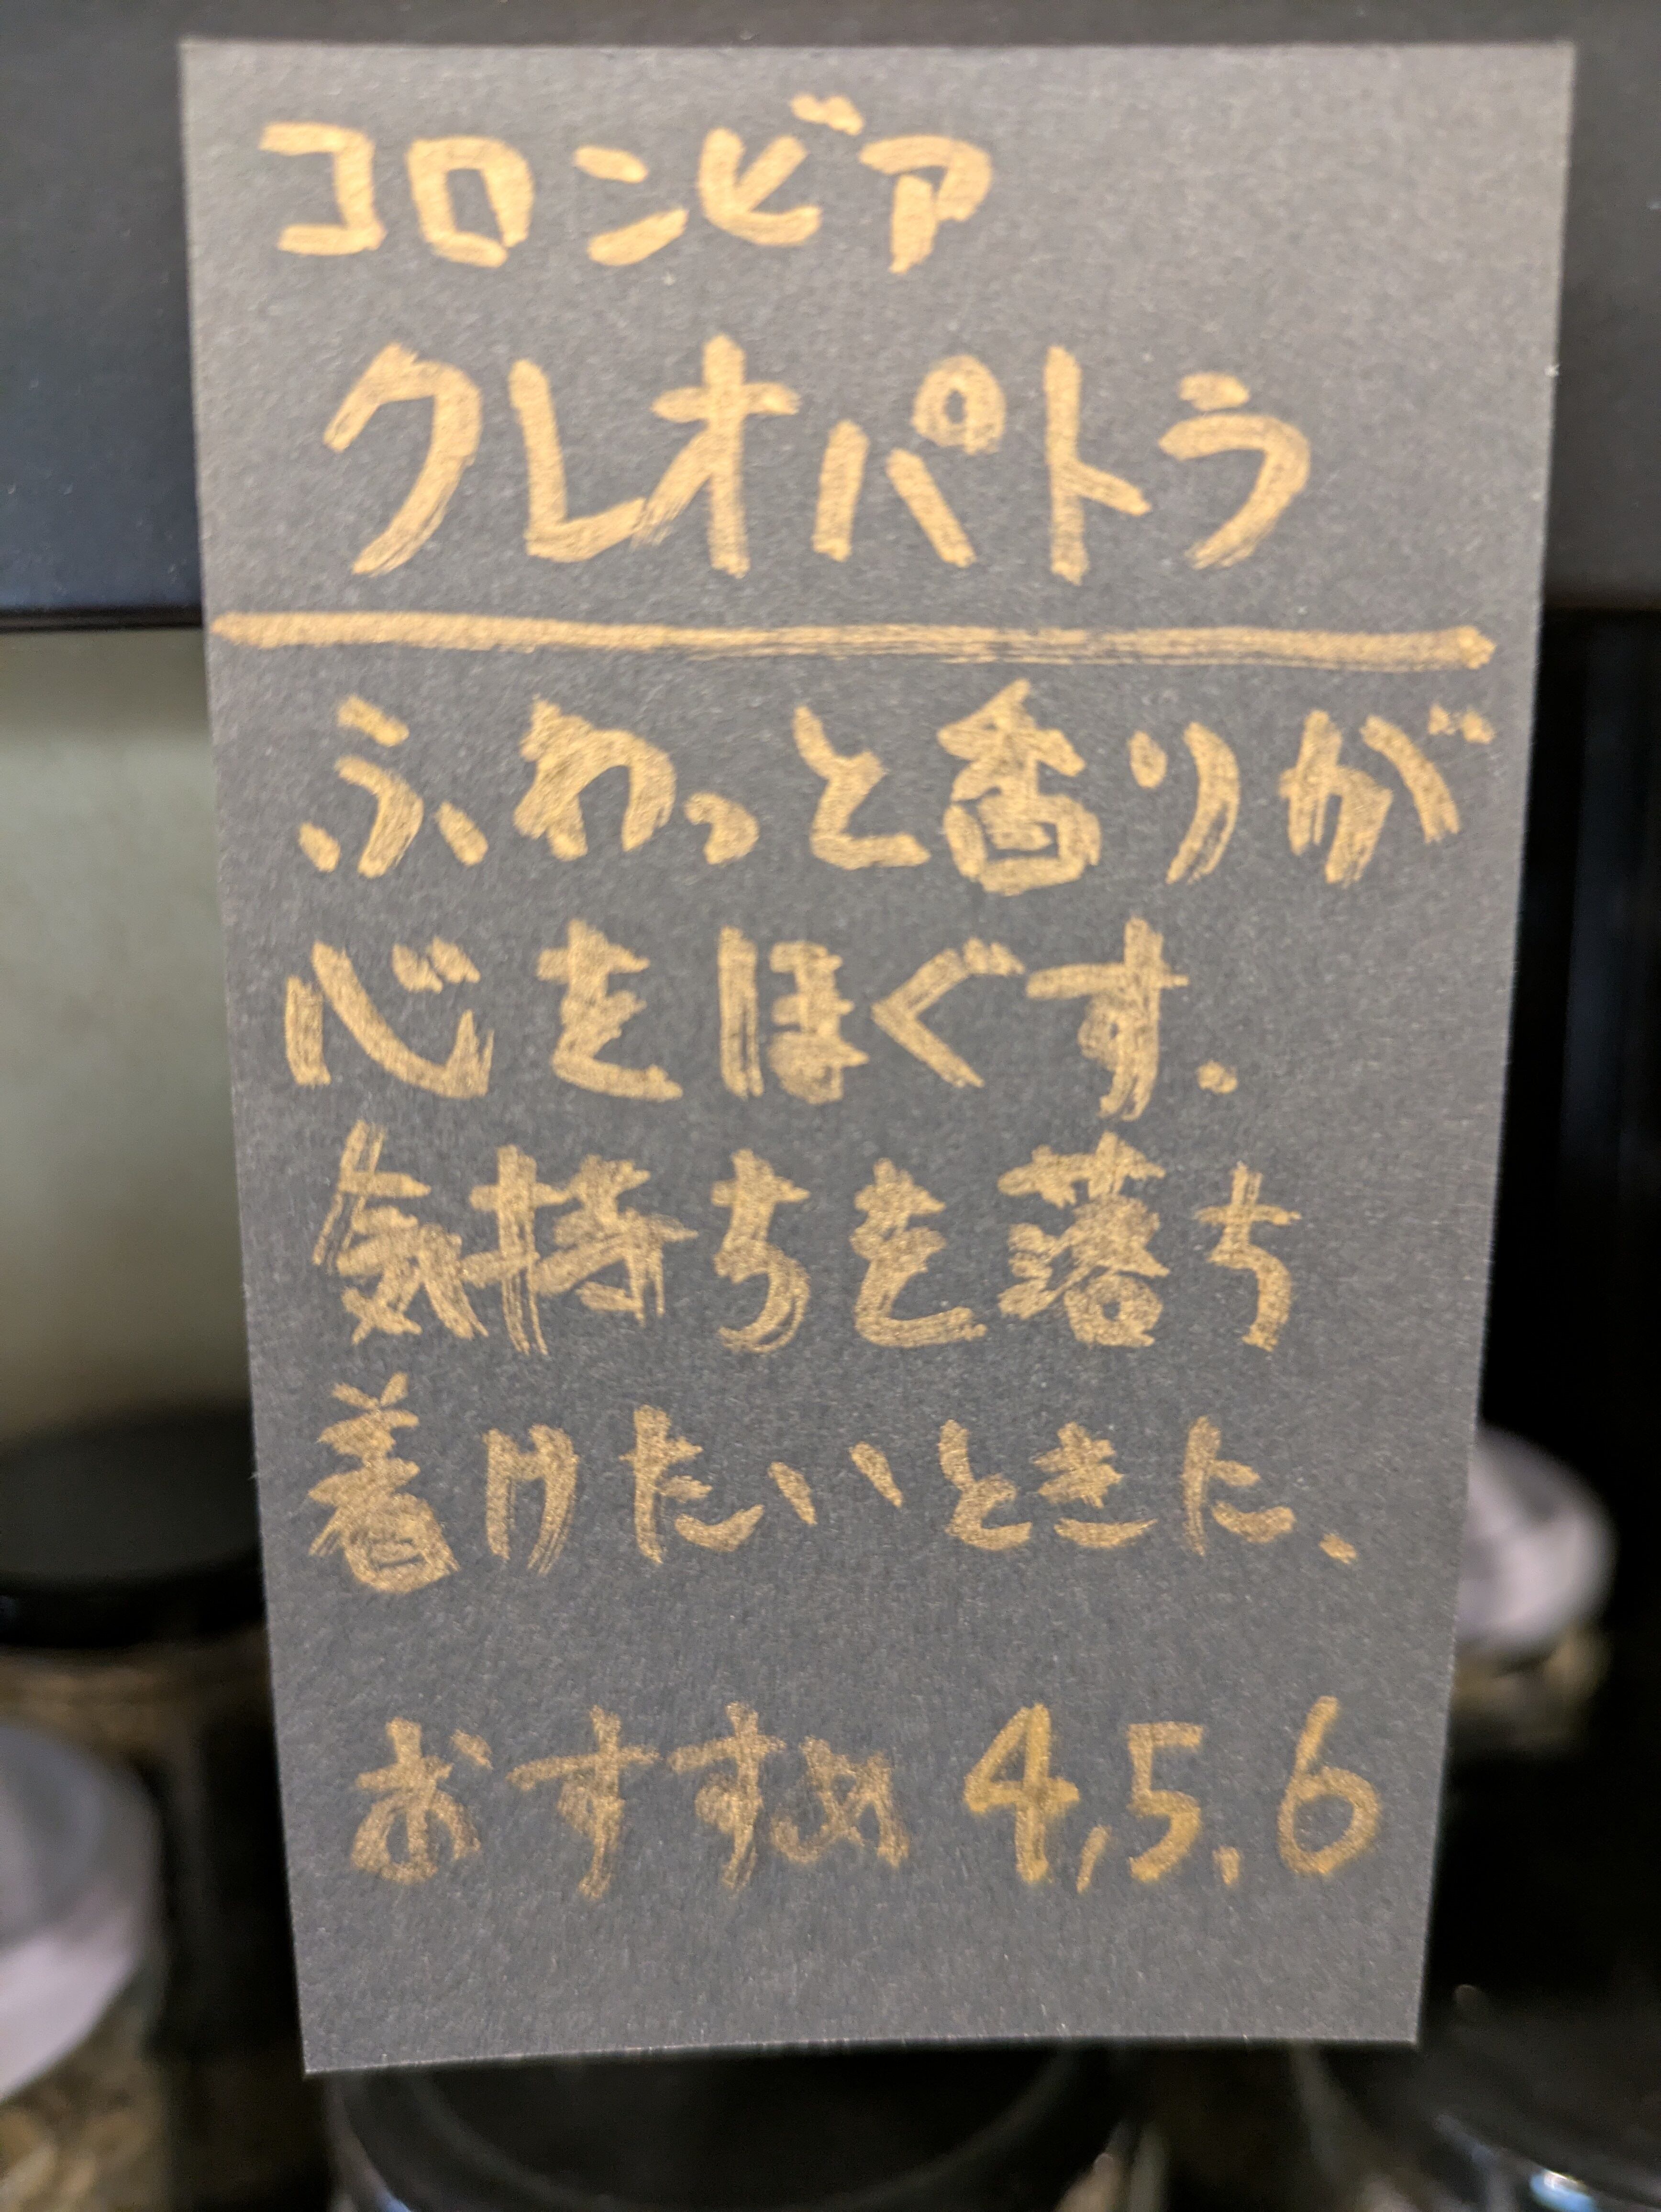 コロンビア
クレオパトラ
ふわっと香りが
心をほぐす.
気持ちを落ち
着けたいときに、
おすすめ 4,5,6